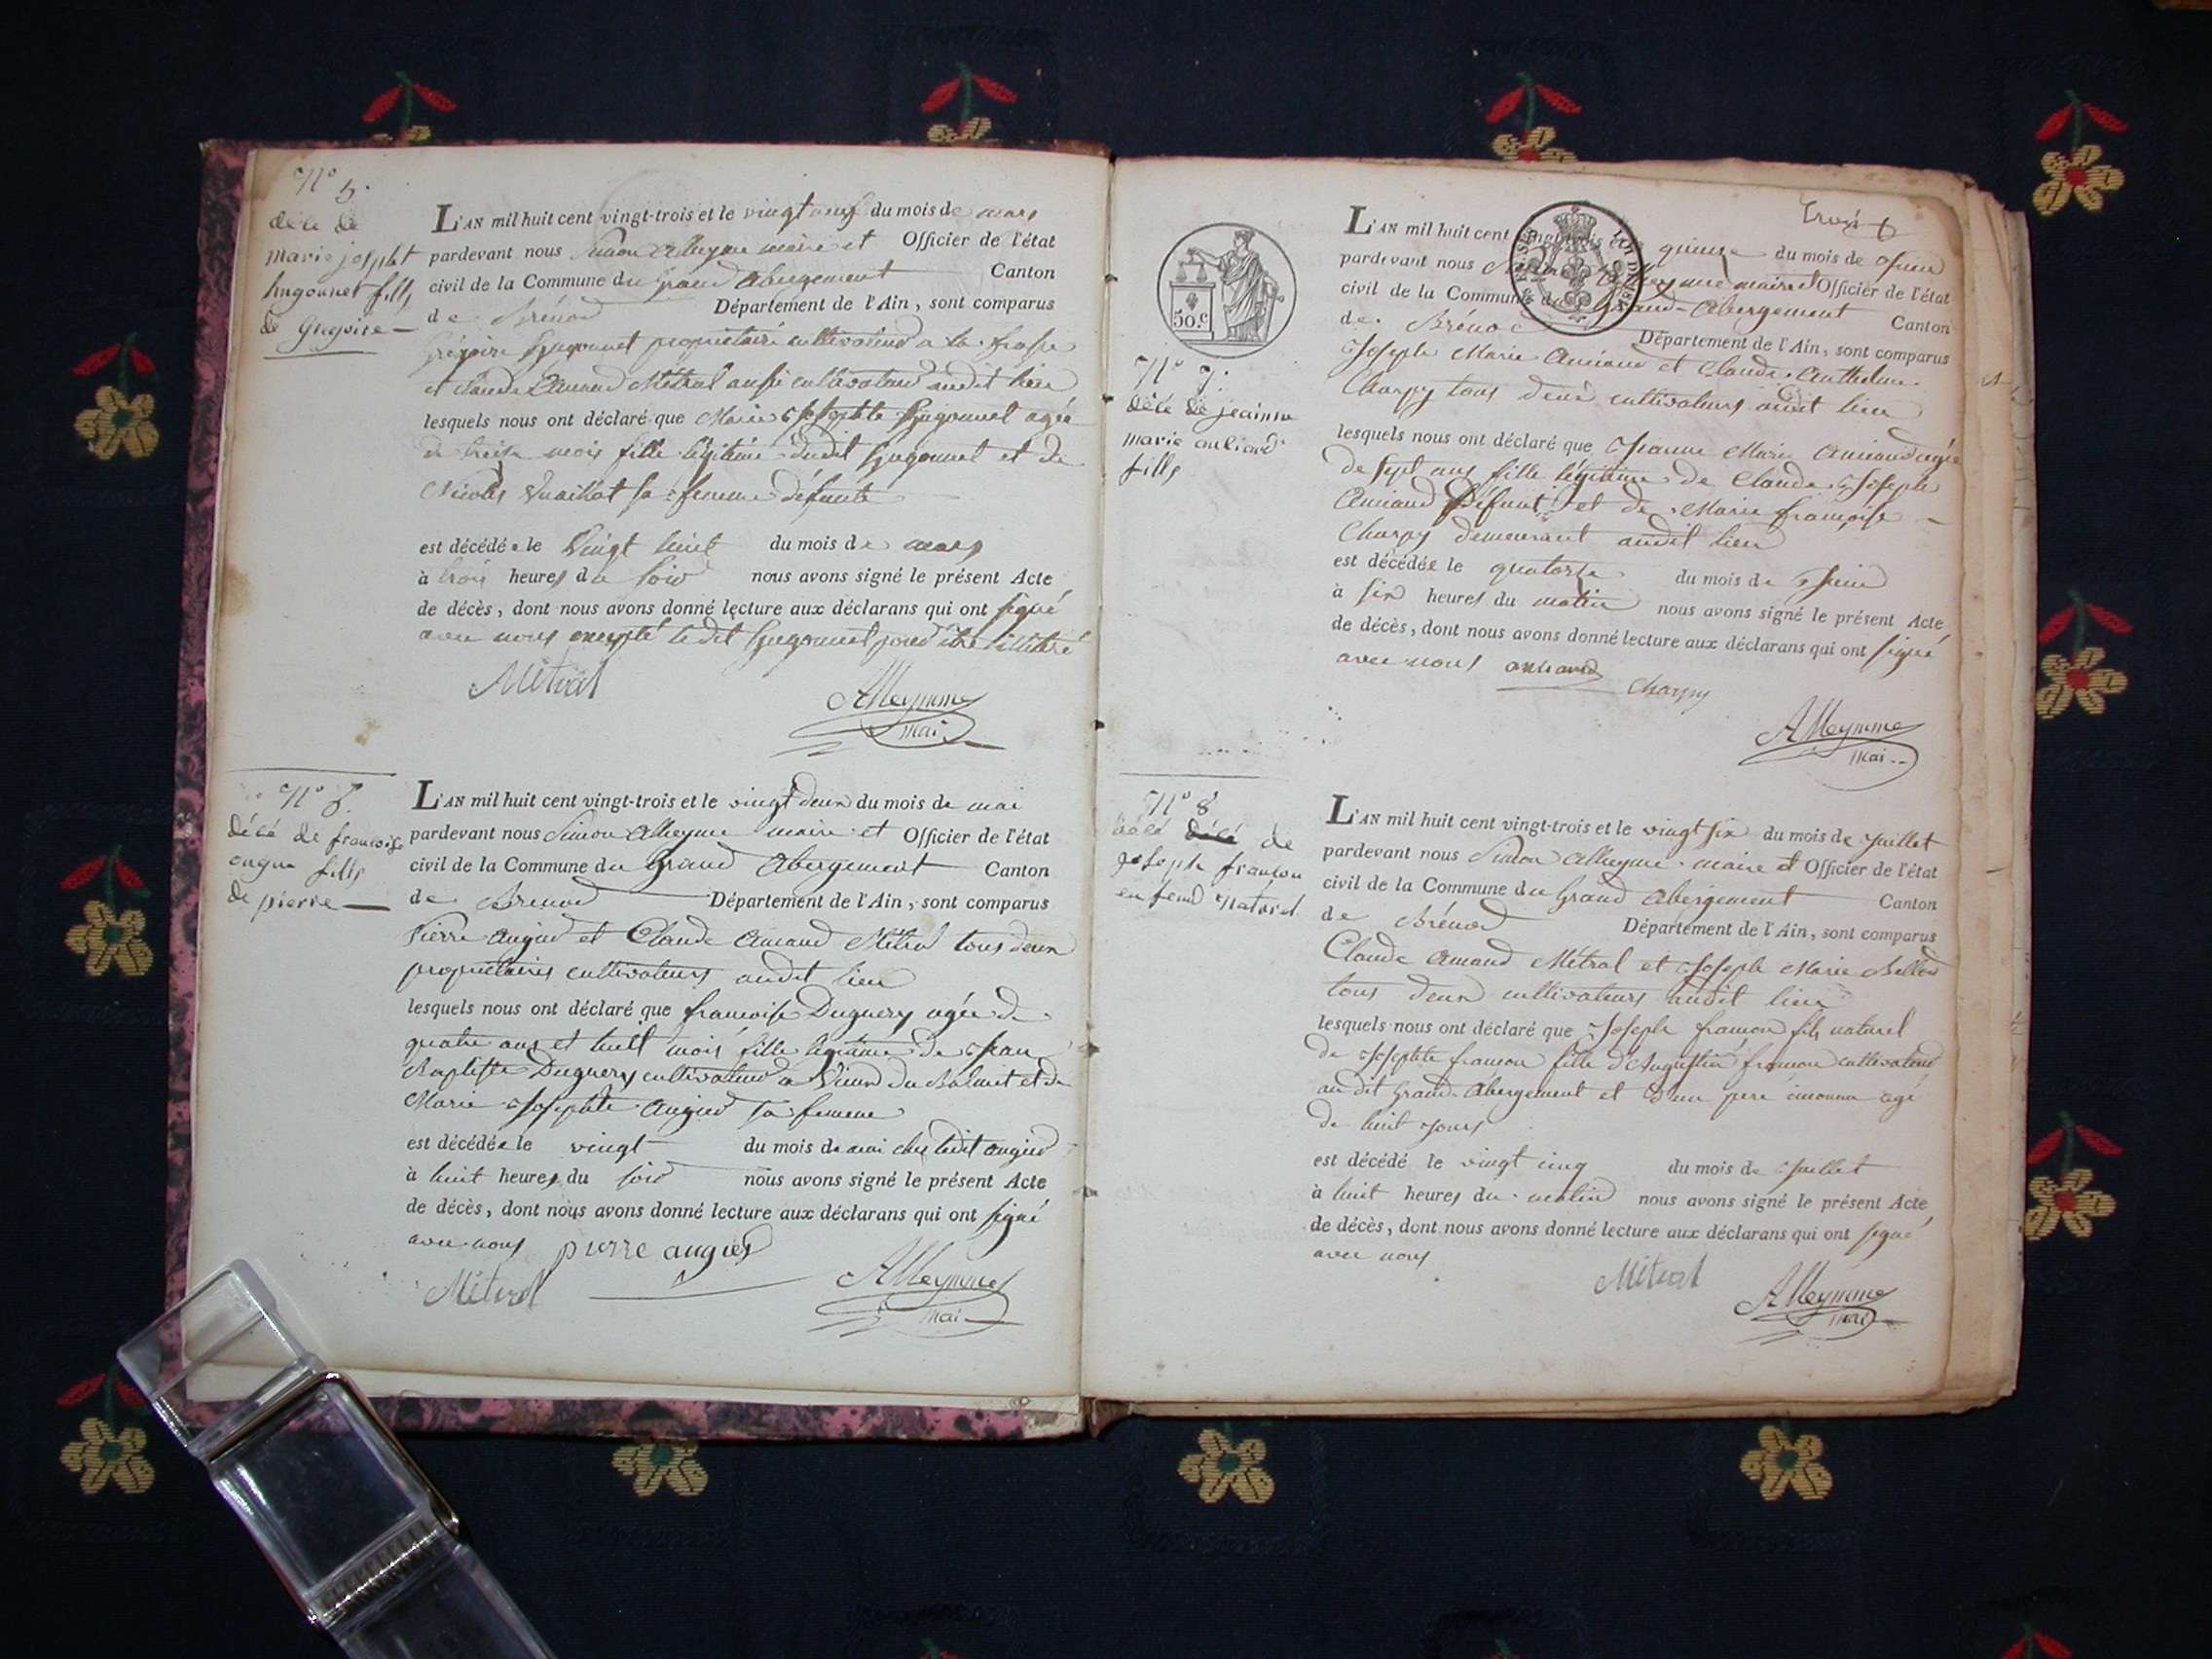 N° 5.
décé de
marie josephte
hugonnet fille
de Gregoire
L'AN mil huit cent vingt-trois et le vingt neuf du mois de mars
pardevant nous Simon Alleyme maire et Officier de l'état
civil de la Commune du Grand Abergement Canton
de Brénod Département de l'Ain, sont comparus
Grégoire Hugonnet propriétaire cultivateur a la
et Claude Amand Métral aussi cultivateur audit lieu
lesquels nous ont déclaré que Marie Josephte Hugonnet agée
de treize mois fille légitime dudit Hugonnet et de
sa femme défunte
est décédée le Vingt huit du mois de mars
à trois heures du soir nous avons signé le présent Acte
de décès, dont nous avons donné lecture aux déclarans qui ont signé
avec nous excepté ledit Hugonnet pour être illitéré
Métral
Alleymme
mai
N° 6.
décé de francoise
fille
de pierre
L'AN mil huit cent vingt-trois et le vingt deux du mois de mai
pardevant nous Simon Alleyme maire et Officier de l'état
civil de la Commune du Grand Abergement Canton
de Brenod Département de l'Ain, sont comparus
Pierre augier et Claude Amand Métral tous deux
propriétaires cultivateurs audit lieu
lesquels nous ont déclaré que francoise Duguery agée de
quatre ans et huit mois fille légitime de Jean
Baptiste Duguery cultivateur a Vieux du Balmet et de
Marie Josephte augier sa femme
est décédée le vingt du mois de mai chez ledit augier
à huit heures du soir nous avons signé le présent Acte
de décès, dont nous avons donné lecture aux déclarans qui ont signé
avec nous pierre augier
Métral
Alleymme
mai
Trois
50.c
N° 7.
décé de jeainne
marie auliand
fille
L'AN mil huit cent vingt-trois et le quinze du mois de Juin
pardevant nous Simon Alleyme maire et Officier de l'état
civil de la Commune du Grand-Abergement Canton
de Brénod Département de l'Ain, sont comparus
Joseph Marie Anciand et Claude Anthelme
Charpy tous deux cultivateurs audit lieu
lesquels nous ont déclaré que Jeanne Marie Anciand agée
de sept ans fille légitime de Claude Joseph
Anciand défunt et de Marie françoise
Charpy demeurant audit lieu
est décédée le quatorze du mois de Juin
à six heures du matin nous avons signé le présent Acte
de décès, dont nous avons donné lecture aux déclarans qui ont signé
avec nous anciand
Charpy
Alleymme
mai
N° 8
décé décé de
joseph francon
enfend naturel
L'AN mil huit cent vingt-trois et le vingt six du mois de Juillet
pardevant nous Simon Alleyme maire et Officier de l'état
civil de la Commune du Grand Abergement Canton
de Brénod Département de l'Ain, sont comparus
Claude Amand Métral et Joseph Marie Billod
tous deux cultivateurs audit lieu
lesquels nous ont déclaré que Joseph francon fils naturel
de Josephte francon fille d'Augustin francon cultivateur
au dit Grand-Abergement et d'un père inconnu agé
de huit jours
est décédé le vingt cinq du mois de Juillet
à huit heures du matin nous avons signé le présent Acte
de décès, dont nous avons donné lecture aux déclarans qui ont signé
avec nous
Métral
Alleymme
mai